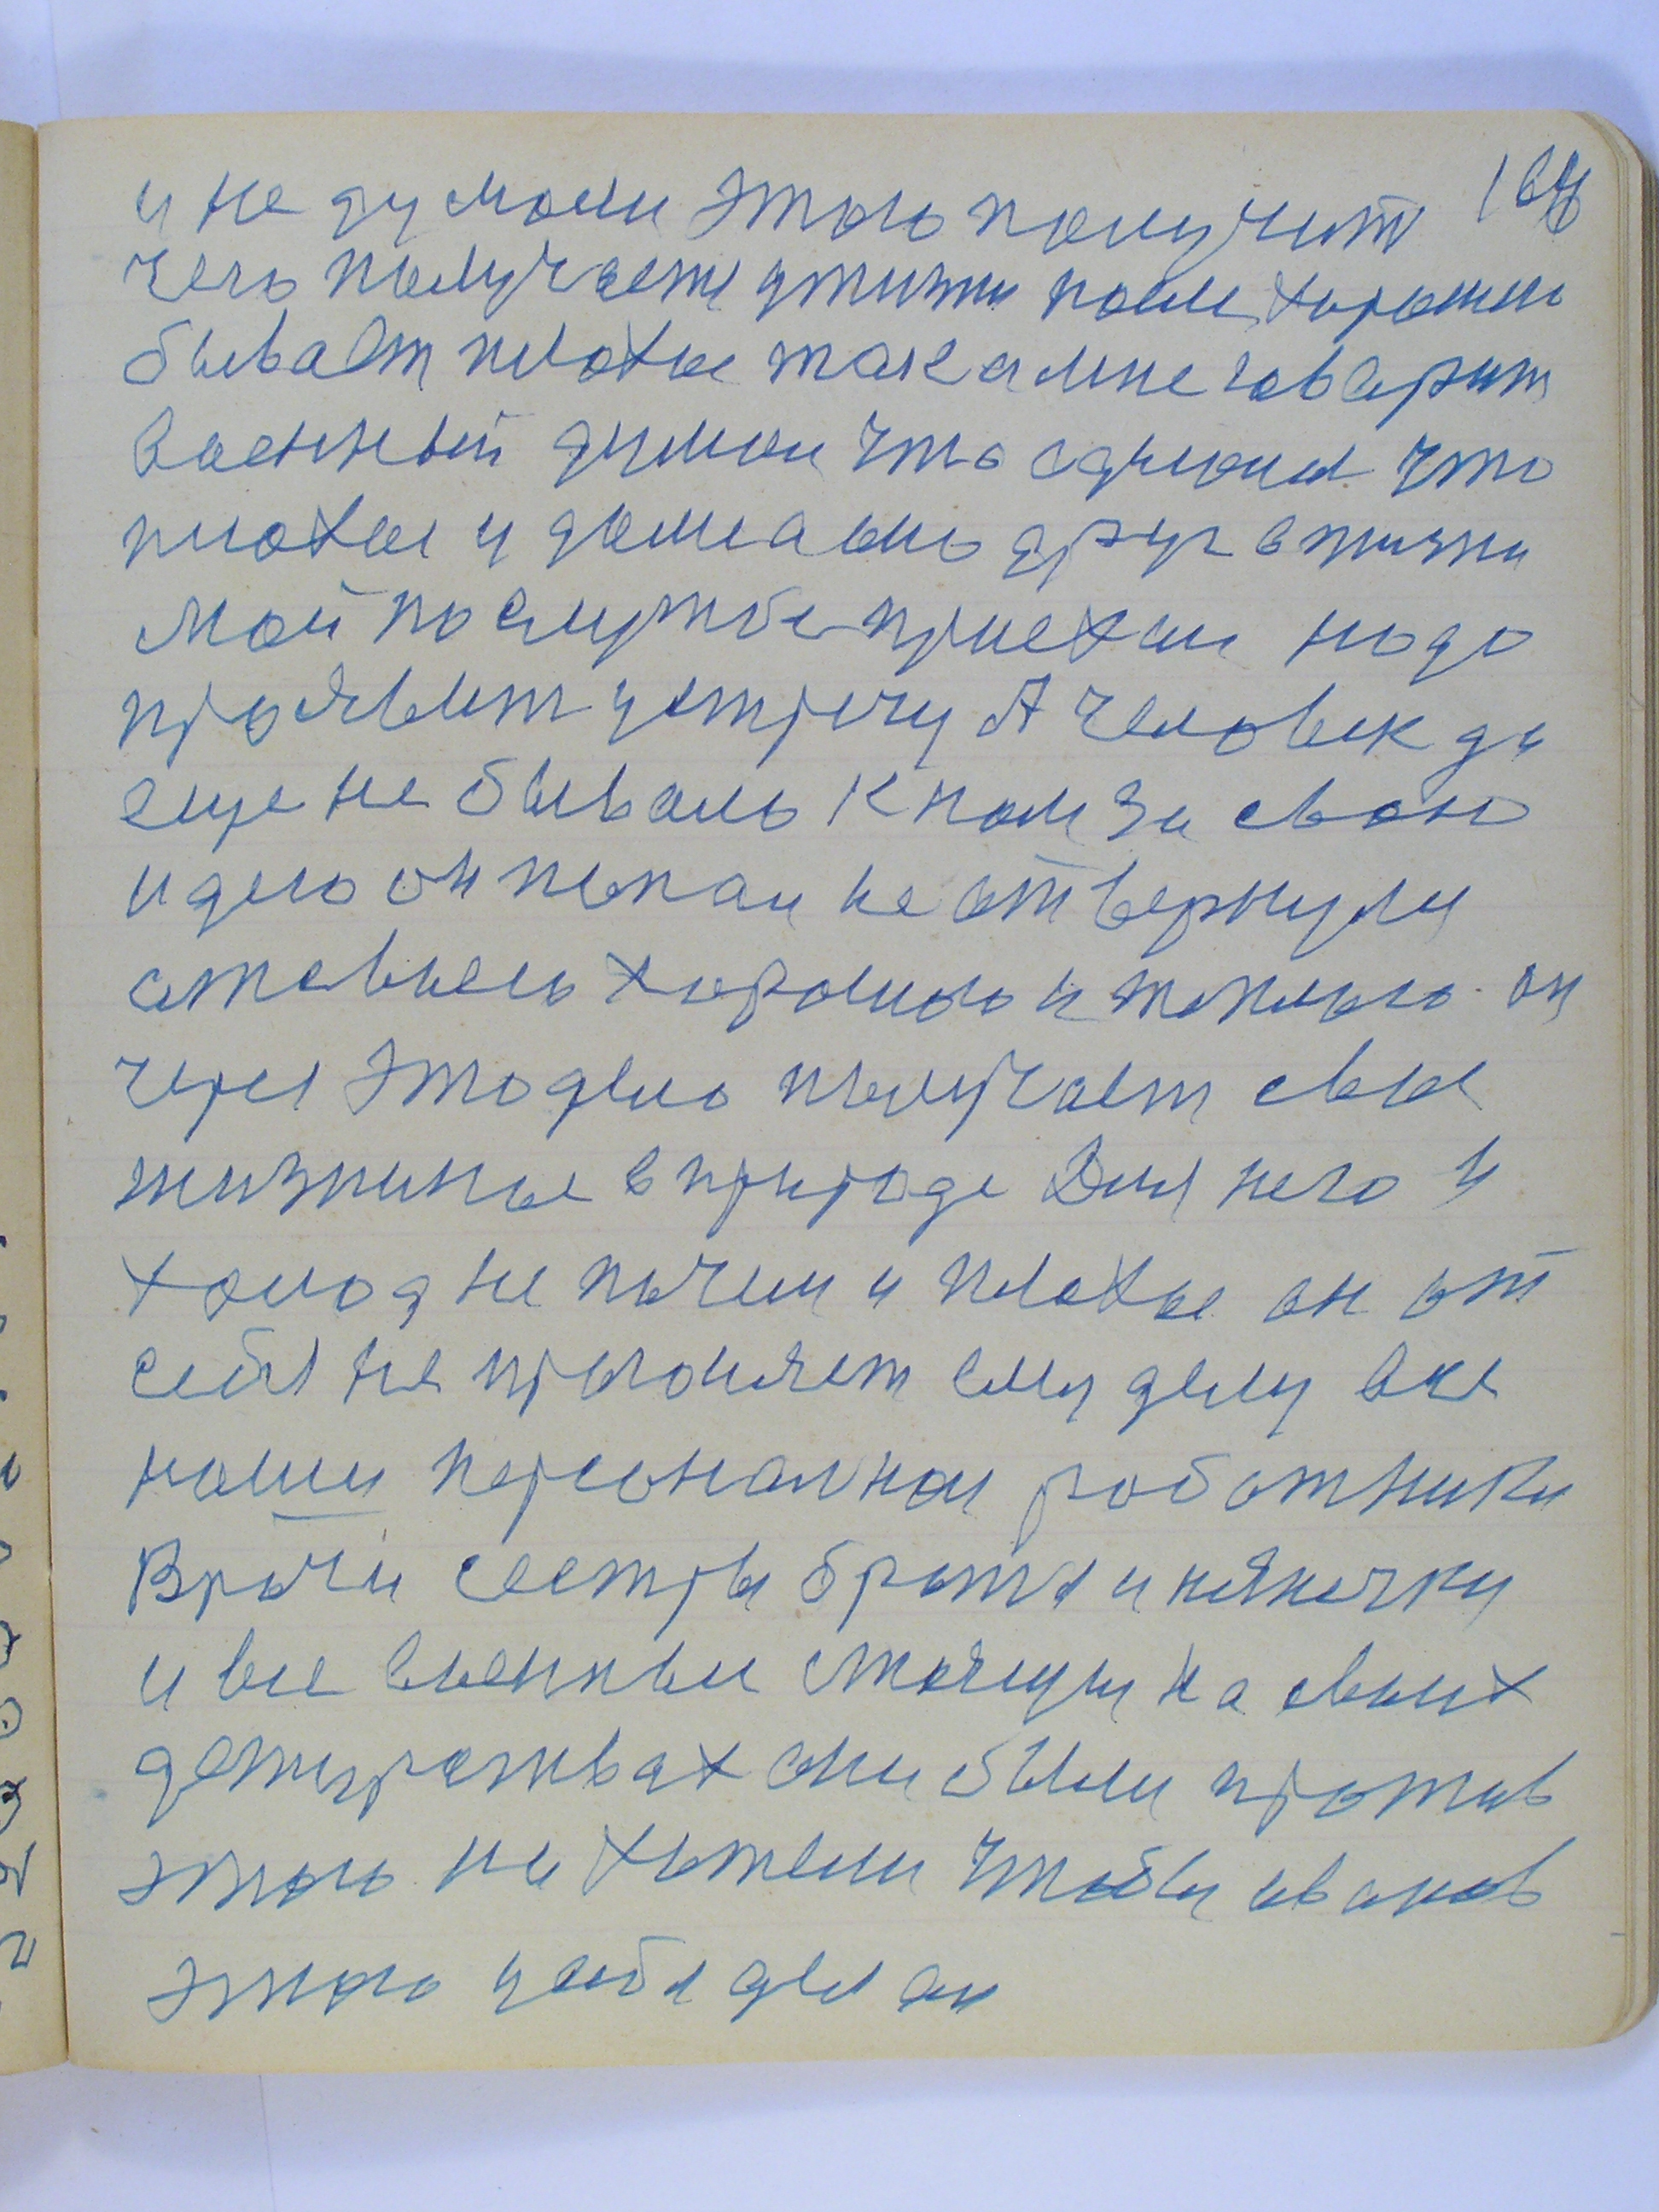 и не думали этого получит
чего получаем у жизни после хорошего
бывает плохое так а мне говарит
военный думал что одному что
плохое и домеаено друг в жизни
мой по службе приехал надо
проявит устречу А человек да
еще не бывало к нам за свою
идею он попал не отвернули
отевнего хорошого и теплого он
через это дело получает свое
жизниное в природе Для него и
холод не почем и плохое он от
себя не прогоняет ему делу все
наши персоналнаи работники
Врачи сестры братя и нянечки
и все военныи стоящии на своих
дежурствах они были против
этого не хотели чтобы иванов
этого у себя делал